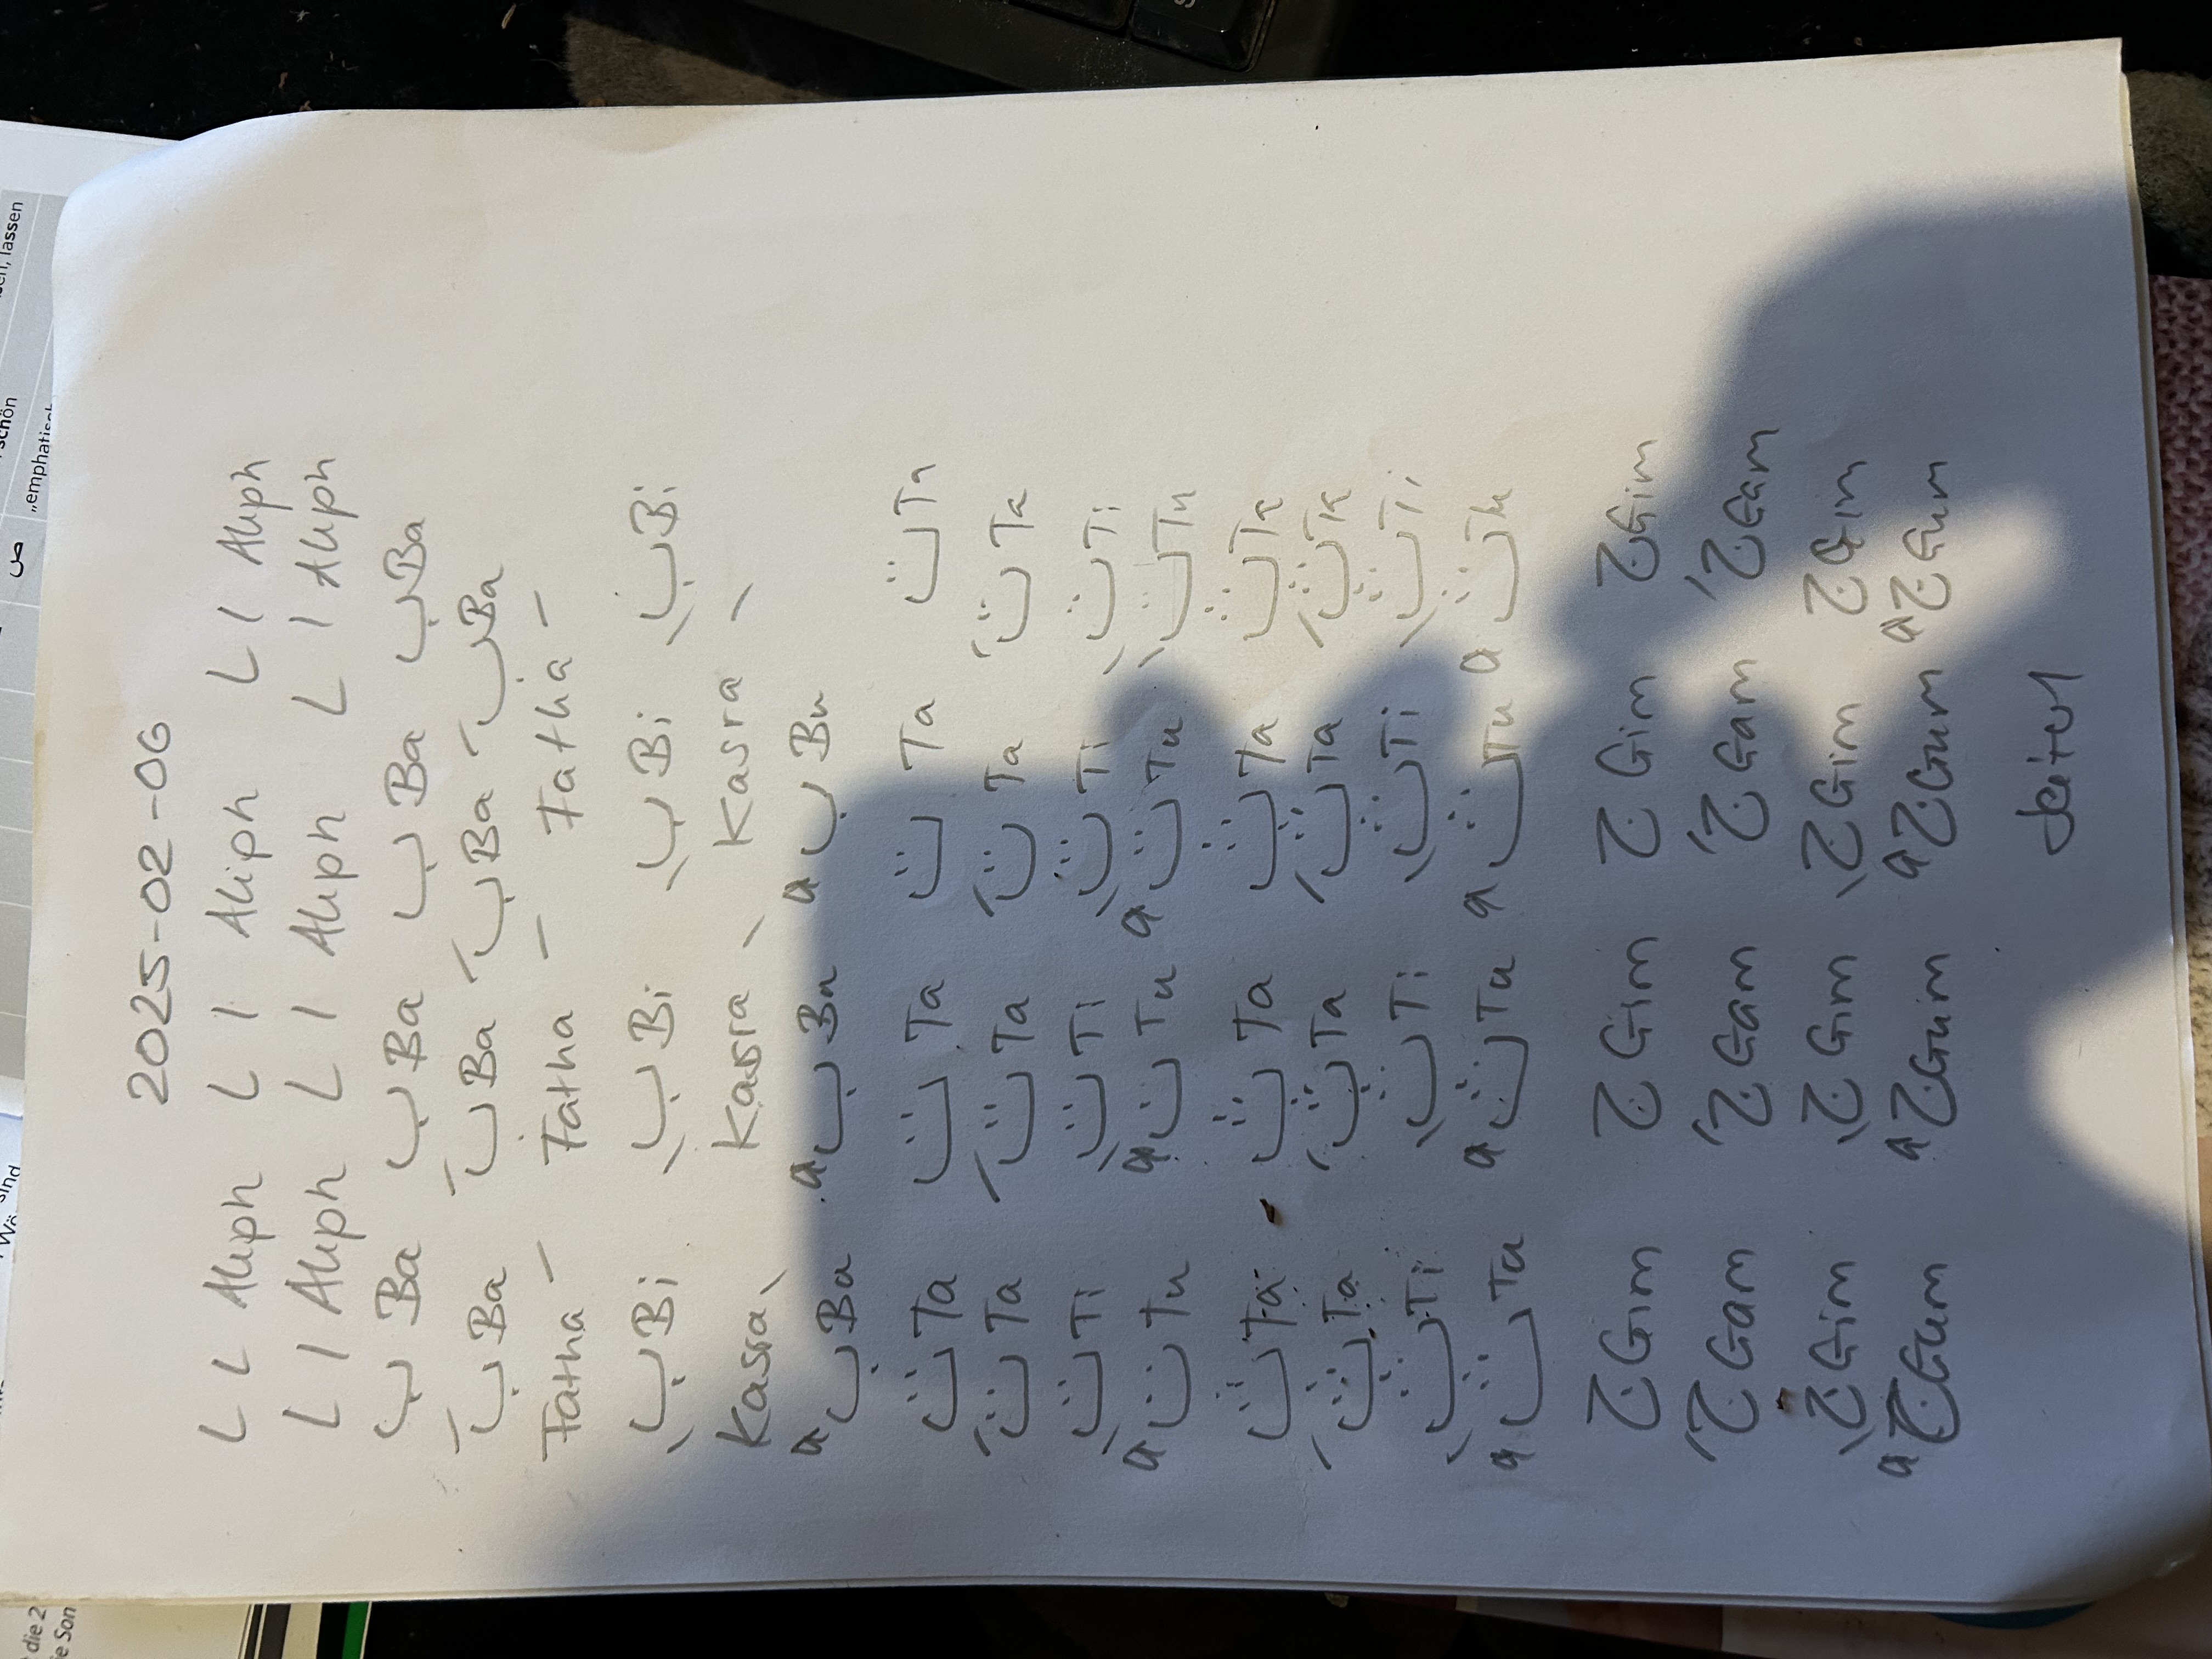 die 2
ie Son
sind
schön
lassen
ص
„emphatisch
2025-02-06
L L Aliph L l Aliph L l Aliph
L l Aliph L l Aliph L l Aliph
ب Ba ب Ba ب Ba ب Ba
بَ Ba بَ Ba بَ Ba بَ Ba
Fatha َ Fatha َ Fatha َ
بِ Bi بِ Bi بِ Bi بِ Bi
Kasra ِ Kasra ِ Kasra ِ
بُ Bu بُ Bu بُ Bu
ت Ta ت Ta ت Ta ت Ta
تَ Ta تَ Ta تَ Ta تَ Ta
تِ Ti تِ Ti تِ Ti تِ Ti
تُ Tu تُ Tu تُ Tu ت Tu
ث Ta ث Ta ث Ta ث Ta
ثَ Ta ثَ Ta ثَ Ta ثَ Ta
ثِ Ti ثِ Ti ثِ Ti ثِ Ti
ثُ Tu ثُ Tu ثُ Tu ثُ Tu
ج Gim ج Gim ج Gim ج Gim
جَ Gam جَ Gam جَ Gam جَ Gam
جِ Gim جِ Gim جِ Gim ج Gim
جُ Gum جُ Gum جُ Gum جُ Gum